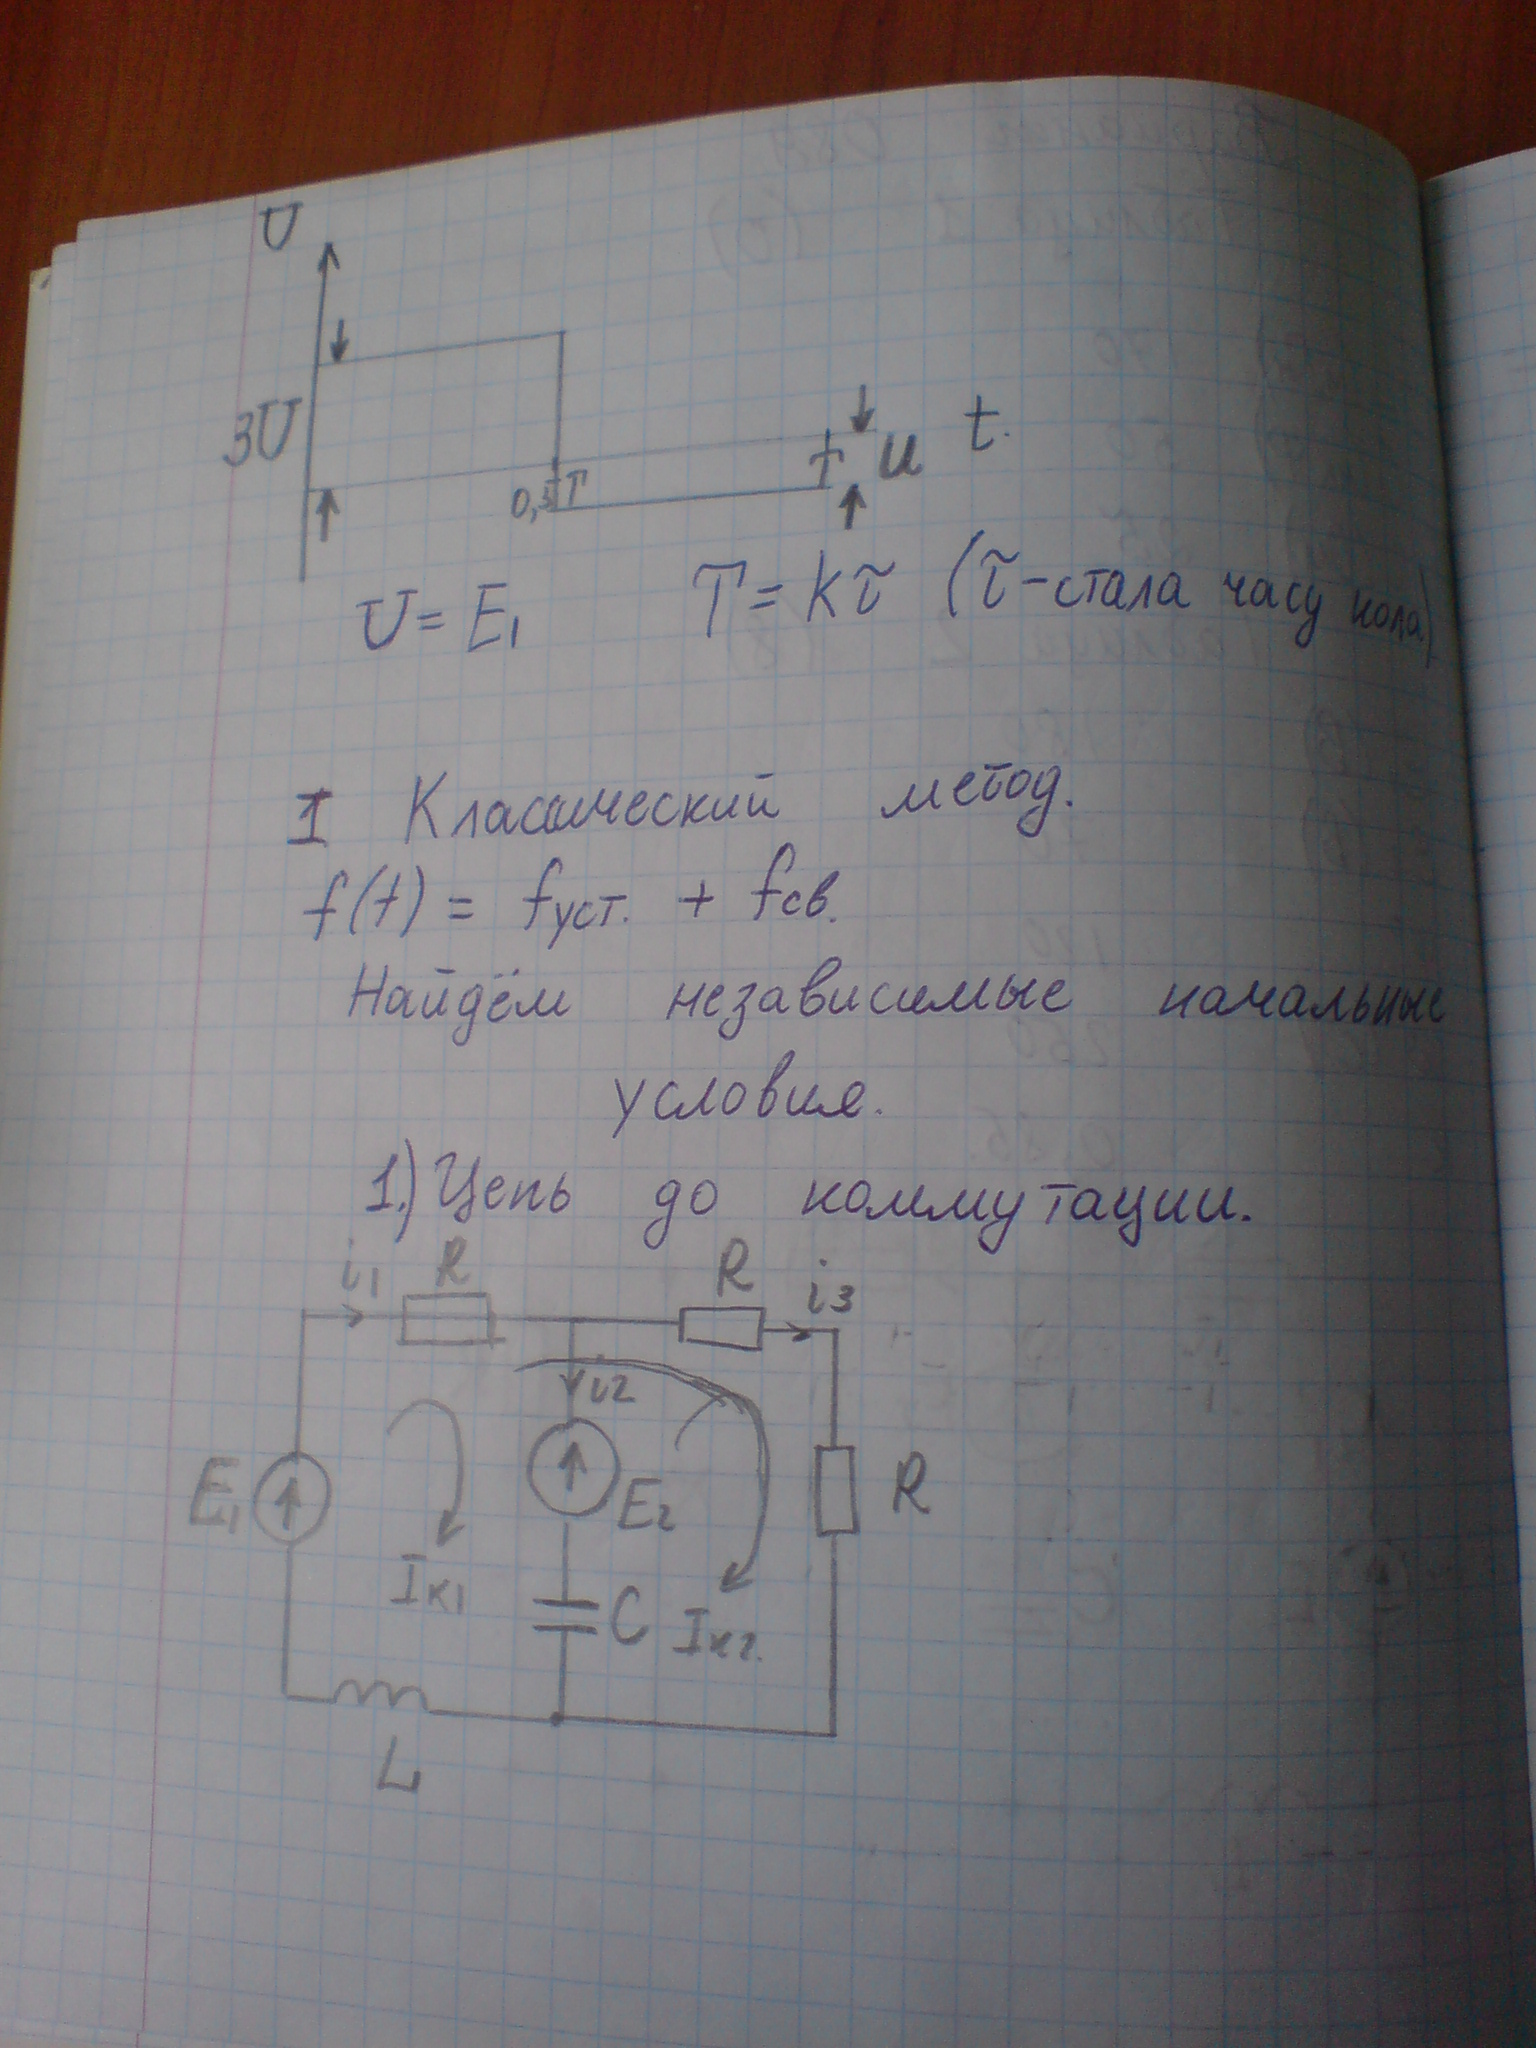 U
3U
0,5T
T
U
t.
U = E1
T = kτ (τ - стала часу кола)
1 Классический метод.
f(t) = fуст. + fсв.
Найдём независимые начальные
условия.
1.) Цепь до коммутации.
i1 R R i3
i2
E1 E2 R
Iк1 C Iк2.
L